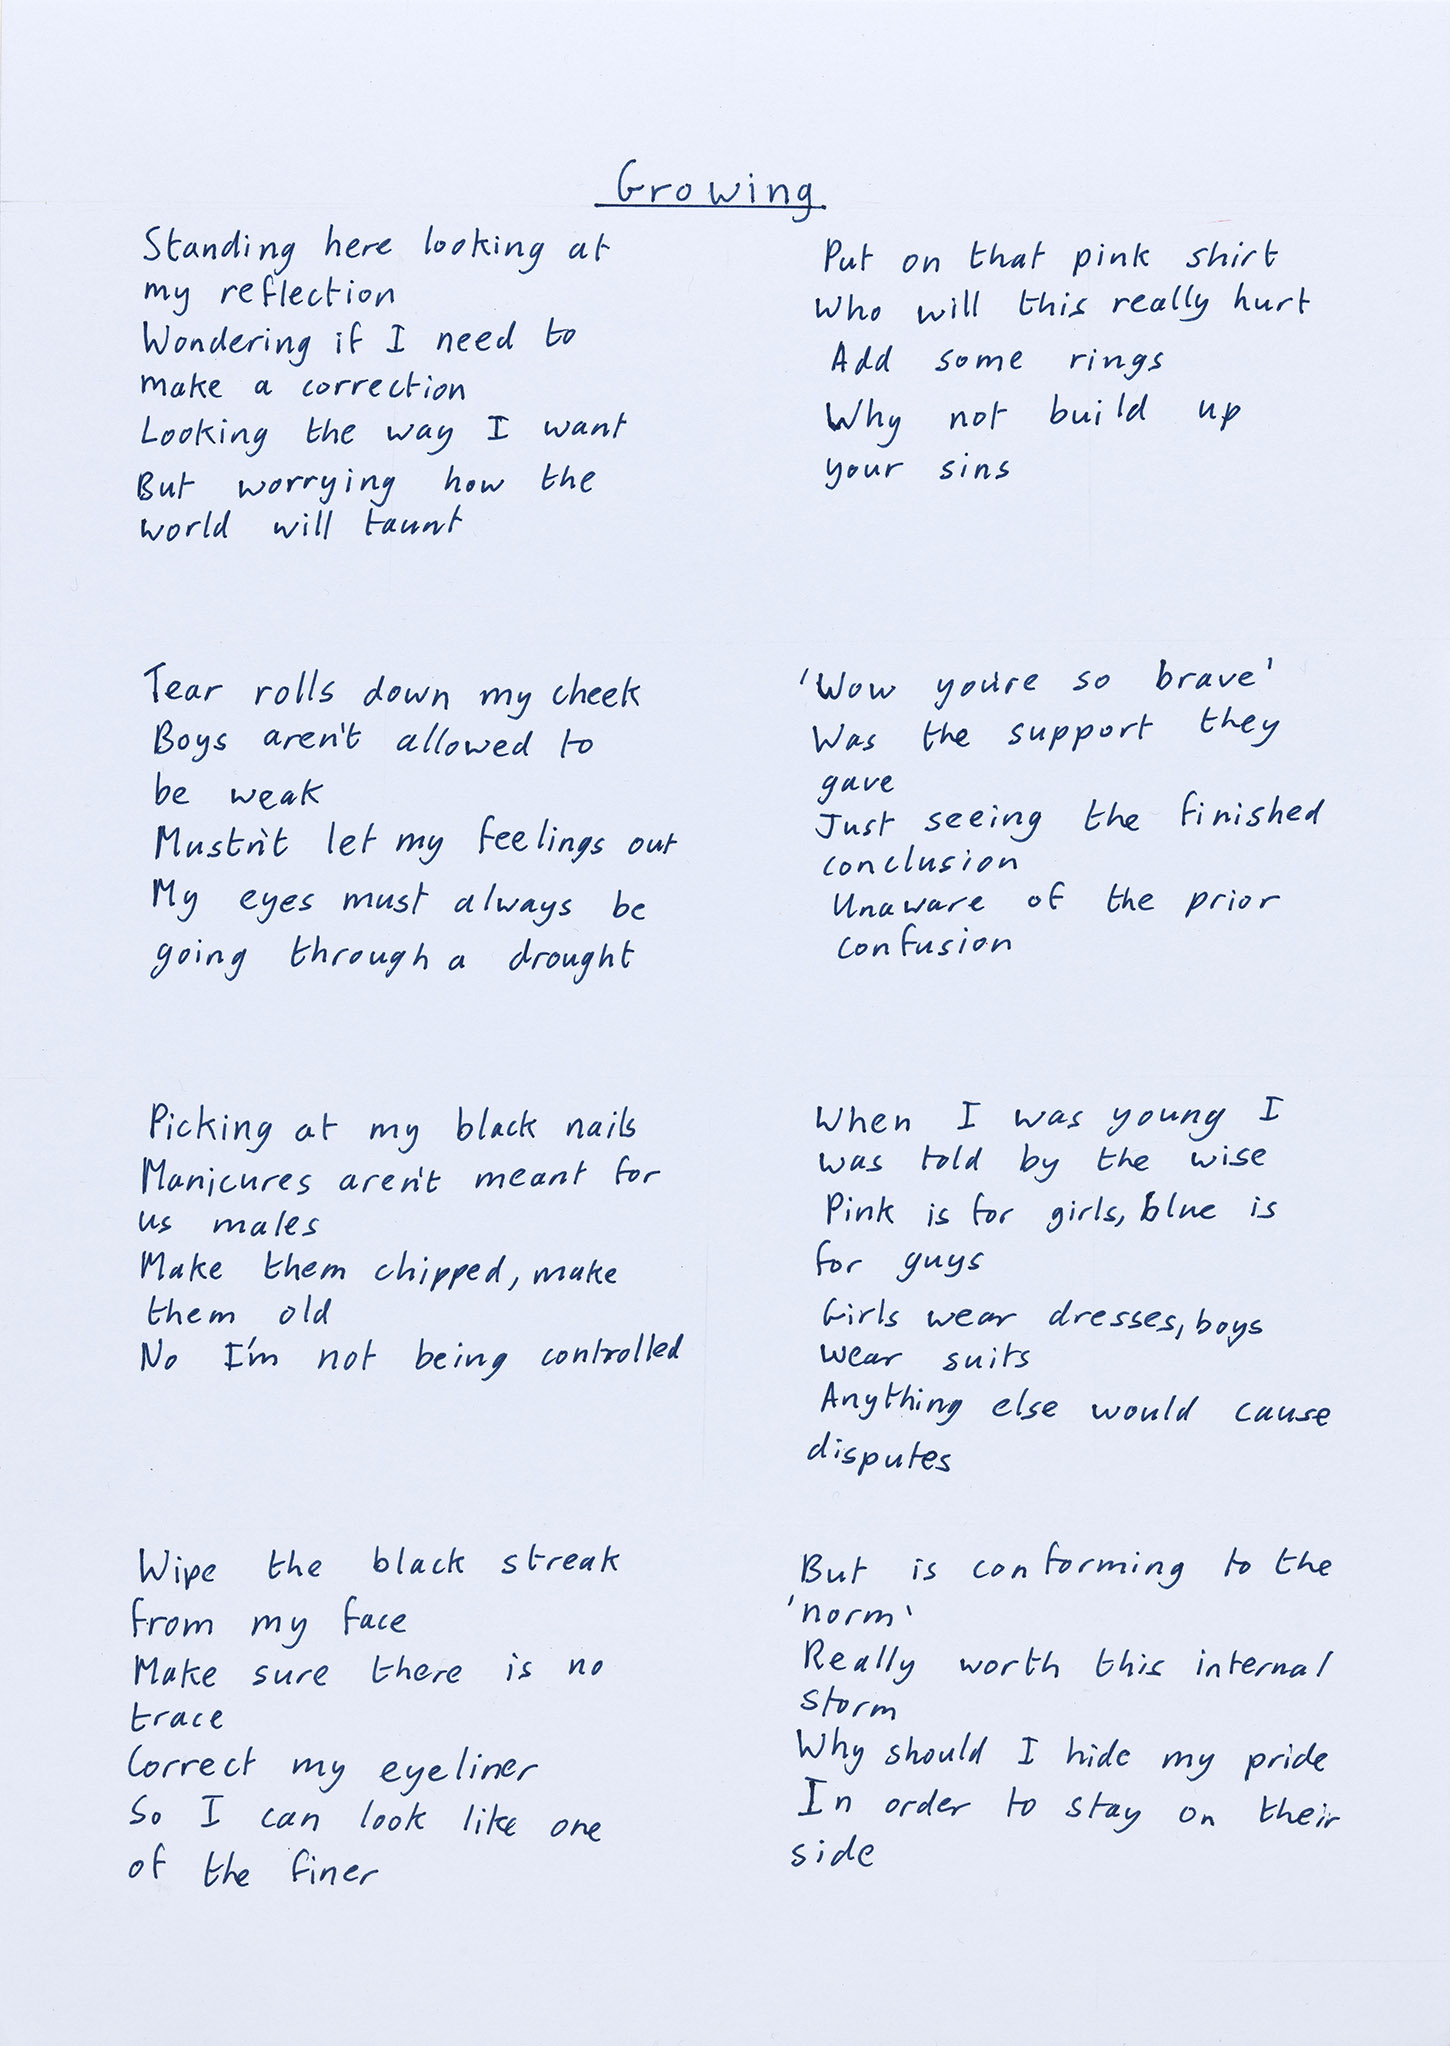 Growing
Standing here looking at
my reflection
Wondering if I need to
make a correction
Looking the way I want
But worrying how the
world will taunt
Tear rolls down my cheek
Boys aren't allowed to
be weak
Mustn't let my feelings out
My eyes must always be
going through a drought
Picking at my black nails
Manicures aren't meant for
us males
Make them chipped, make
them old
No I'm not being controlled
Wipe the black streak
from my face
Make sure there is no
trace
Correct my eyeliner
So I can look like one
of the finer
Put on that pink shirt
Who will this really hurt
Add some rings
Why not build up
your sins
'Wow you're so brave'
Was the support they
gave
Just seeing the finished
conclusion
Unaware of the prior
confusion
When I was young I
was told by the wise
Pink is for girls, blue is
for guys
Girls wear dresses, boys
wear suits
Anything else would cause
disputes
But is conforming to the
'norm'
Really worth this internal
storm
Why should I hide my pride
In order to stay on their
side